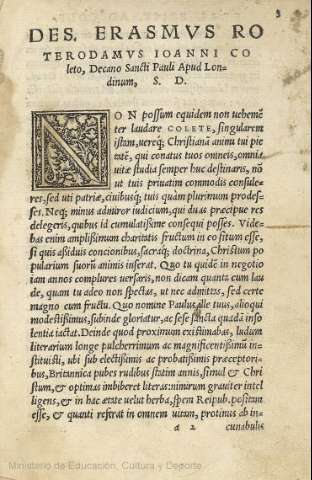 3
DES. ERASMVS RO
TERODAMVS IOANNI CO
leto, Decano Sancti Pauli Apud Lon-
dinum, S. D.
NON possum equidem non uehemẽ
ter laudare COLETE, singularem
istam, uereq; Christianã animi tui pie
tatẽ, qui conatus tuos omneis, omnia
uitæ studia semper huc destinaris, nõ
ut tuis priuatim commodis consule-
res, sed uti patriæ, ciuibusq; tuis quàm plurimum prodes-
ses. Neq; minus admiror iudicium, qui duas præcipue res
delegeris, quibus id cumulatissime consequi posses. Vide-
bas enim amplissimum charitatis fructum in eo situm esse,
si quis assiduis concionibus, sacraq; doctrina, Christum po
pularium suorũ animis inserat. Quo tu quidẽ in negotio
iam annos complures uersaris, non dicam quanta cum lau
de, quam tu adeo non spectas, ut nec admittas, sed certe
magno cum fructu. Quo nomine Paulus ille tuus, alioqui
modestissimus, subinde gloriatur, ac sese sancta quadã inso
lentia iactat. Deinde quod proximum existimabas, ludum
literarium longe pulcherrimum ac magnificentissimũ in-
stituisti, ubi sub electissimis ac probatissimis præceptori-
bus, Britannica pubes rudibus statim annis, simul & Chri
stum, & optimas imbiberet literas: nimirum grauiter intel
ligens, & in hac ætate uelut herba, spem Reipub. positam
esse, & quanti referat in omnem uitam, protinus ab in-
a 2 cunabulis
Ministerio de Educación, Cultura y Deporte